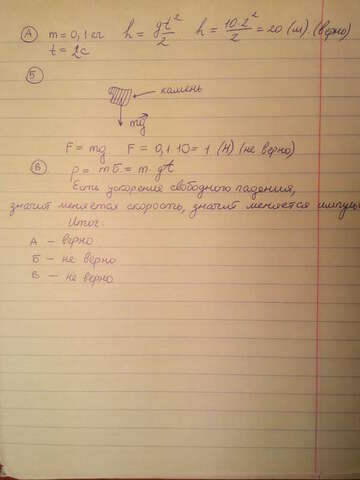 А m = 0,1 кг h = gt²/2 h = 10·2²/2 = 20 (м) (верно)
t = 2с
Б
камень
mg
F = mg F = 0,1·10 = 1 (Н) (не верно)
В p = mυ = m·gt
Есть ускорение свободного падения,
значит меняется скорость, значит меняется импульс
Итог:
А — верно
Б — не верно
В — не верно